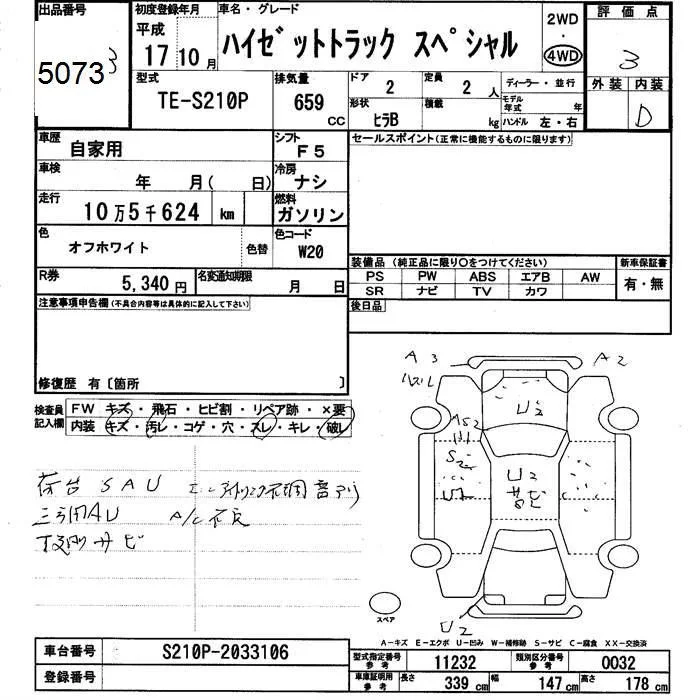 出品番号
50733
初度登録年月
平成
17 10月
車名・グレード
ハイゼットトラック スペシャル
2WD
・
4WD
評価点
3
外装 内装
D
型式
TE-S210P
排気量
659 CC
ドア
2
定員
2 人
形状
ヒラB
積載
kg
ディーラー・並行
モデル年式 年
ハンドル 左・右
車歴
自家用
シフト
F5
セールスポイント(正常に機能するものに限ります)
車検
年 月( 日)
冷房
ナシ
走行
10万5千624 km
燃料
ガソリン
色
オフホワイト
色替
色コード
W20
装備品 (純正品に限り○をつけてください)
PS PW ABS エアB AW
SR ナビ TV カワ
新車保証書
有・無
R券
5,340円
名変通知期限
月 日
後日品
注意事項申告欄(不具合内容等は具体的に記入して下さい)
修復歴 有〔箇所 〕
検査員記入欄
FW キズ・飛石・ヒビ割・リペア跡・×要
内装 キズ・汚レ・コゲ・穴・スレ・キレ・破レ
荷台 SAU エンアイドリング不調 音アリ
三方開AU A/C不良
下廻サビ
A3
ハズレ
A2
U2
AS2
S2
U2
U2
サビ
U2
スペア
A-キズ E-エクボ U-凹み W-補修跡 S-サビ C-腐食 XX-交換済
車台番号
S210P-2033106
登録番号
型式指定番号 参考
11232
類別区分番号 参考
0032
車庫証明用 参考
長さ 339 cm 幅 147 cm 高さ 178 cm